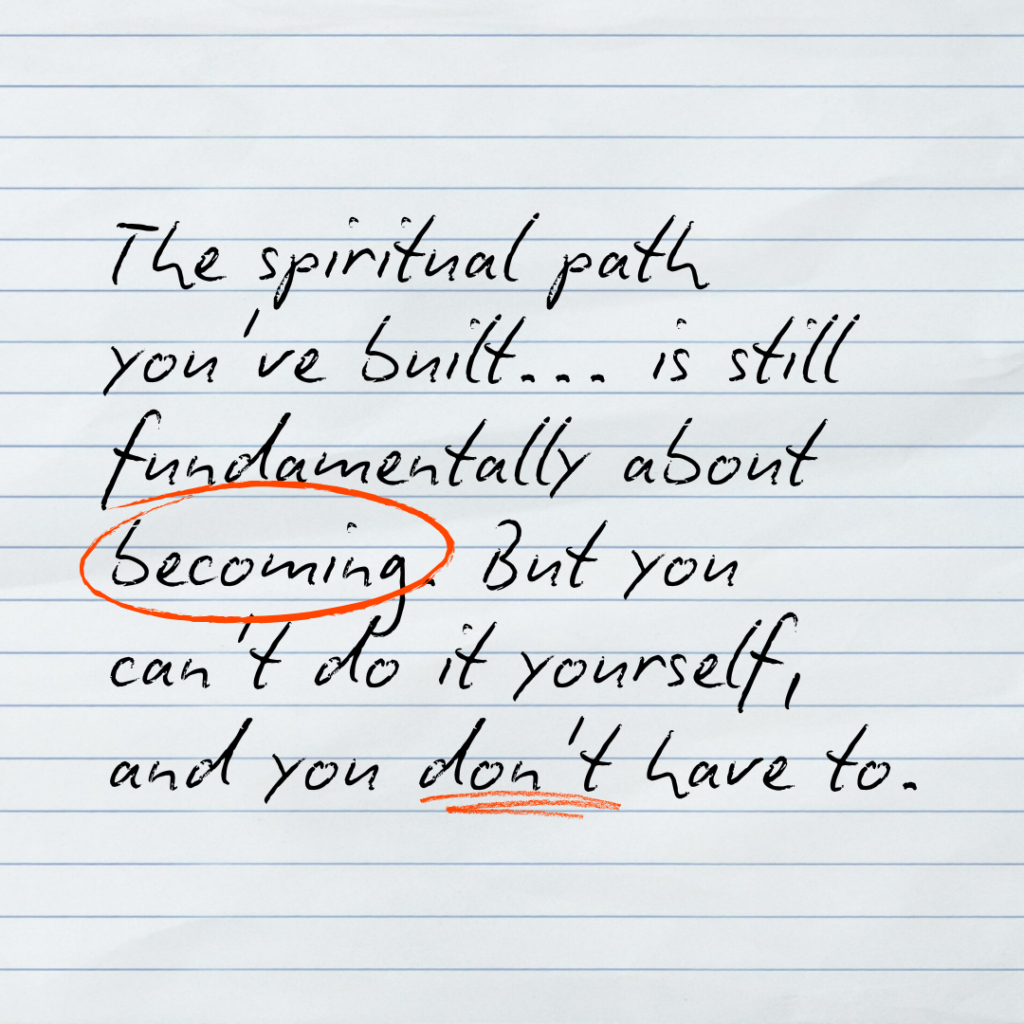 The spiritual path
you've built... is still
fundamentally about
becoming. But you
can't do it yourself,
and you don't have to.